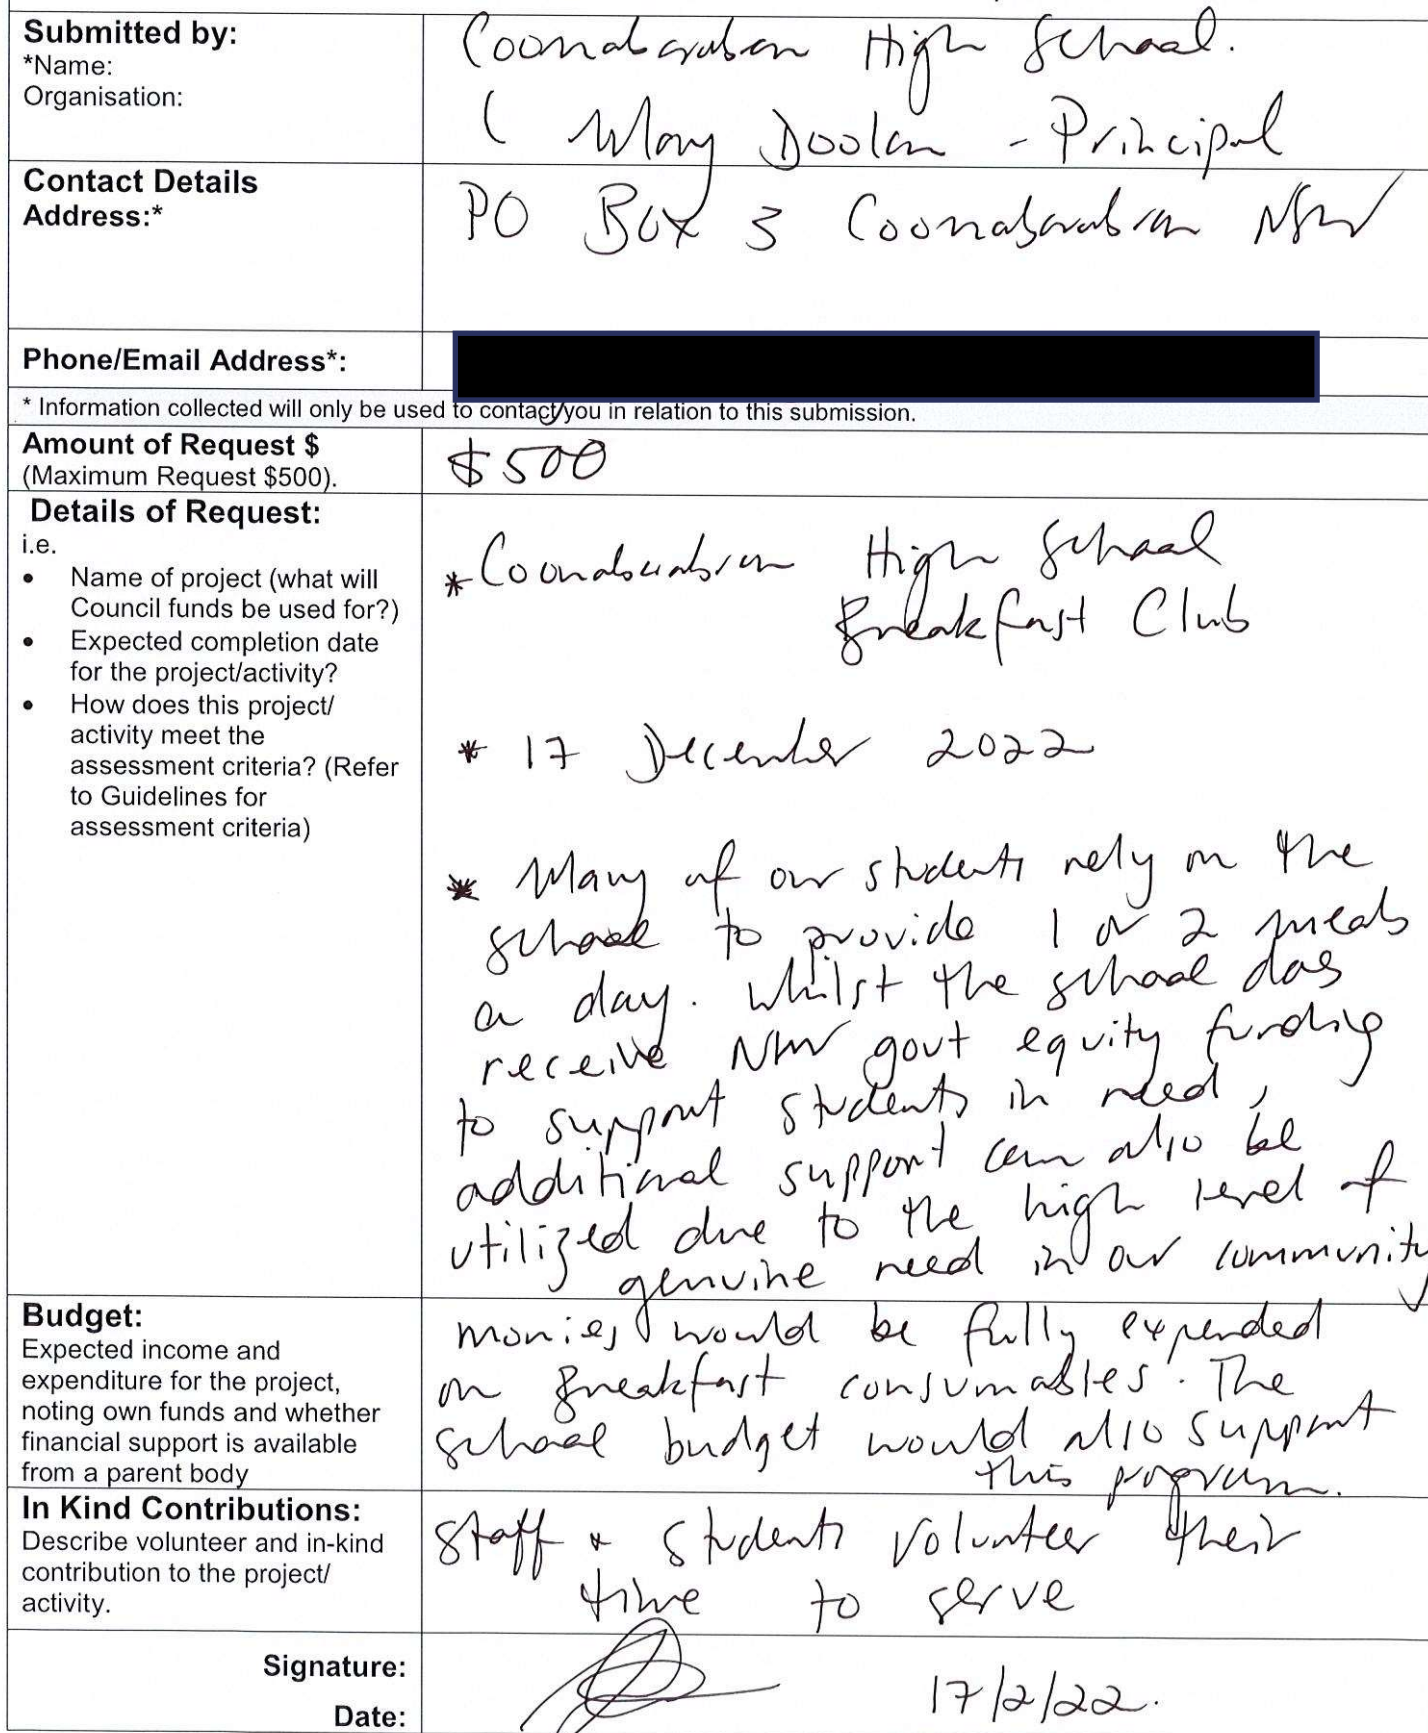 Submitted by:
*Name:
Organisation:
Coonabarabran High School.
( Mary Doolan - Principal
Contact Details
Address:*
PO Box 3 Coonabarabran NSW
Phone/Email Address*:
* Information collected will only be used to contact you in relation to this submission.
Amount of Request $
(Maximum Request $500).
$500
Details of Request:
i.e.
• Name of project (what will
Council funds be used for?)
• Expected completion date
for the project/activity?
• How does this project/
activity meet the
assessment criteria? (Refer
to Guidelines for
assessment criteria)
* Coonabarabran High School
Breakfast Club
* 17 December 2022
* Many of our students rely on the
school to provide 1 or 2 meals
a day. Whilst the school does
receive NSW govt equity funding
to support students in need,
additional support can also be
utilized due to the high level of
genuine need in our community
Budget:
Expected income and
expenditure for the project,
noting own funds and whether
financial support is available
from a parent body
monies would be fully expended
on Breakfast consumables. The
school budget would also support
this program.
In Kind Contributions:
Describe volunteer and in-kind
contribution to the project/
activity.
Staff + Students volunteer their
time to serve
Signature:
Date:
17/2/22.